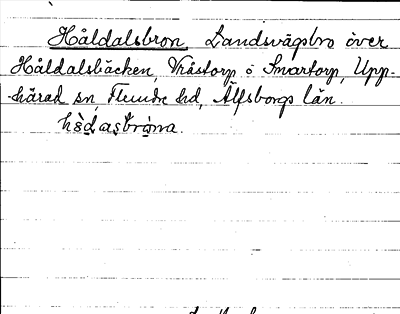 Håldalsbron Landsvägsbro över
Håldalsbäcken, Kråstorp o Smartorp, Upp-
härad sn, Flundre hd, Älfsborgs län.